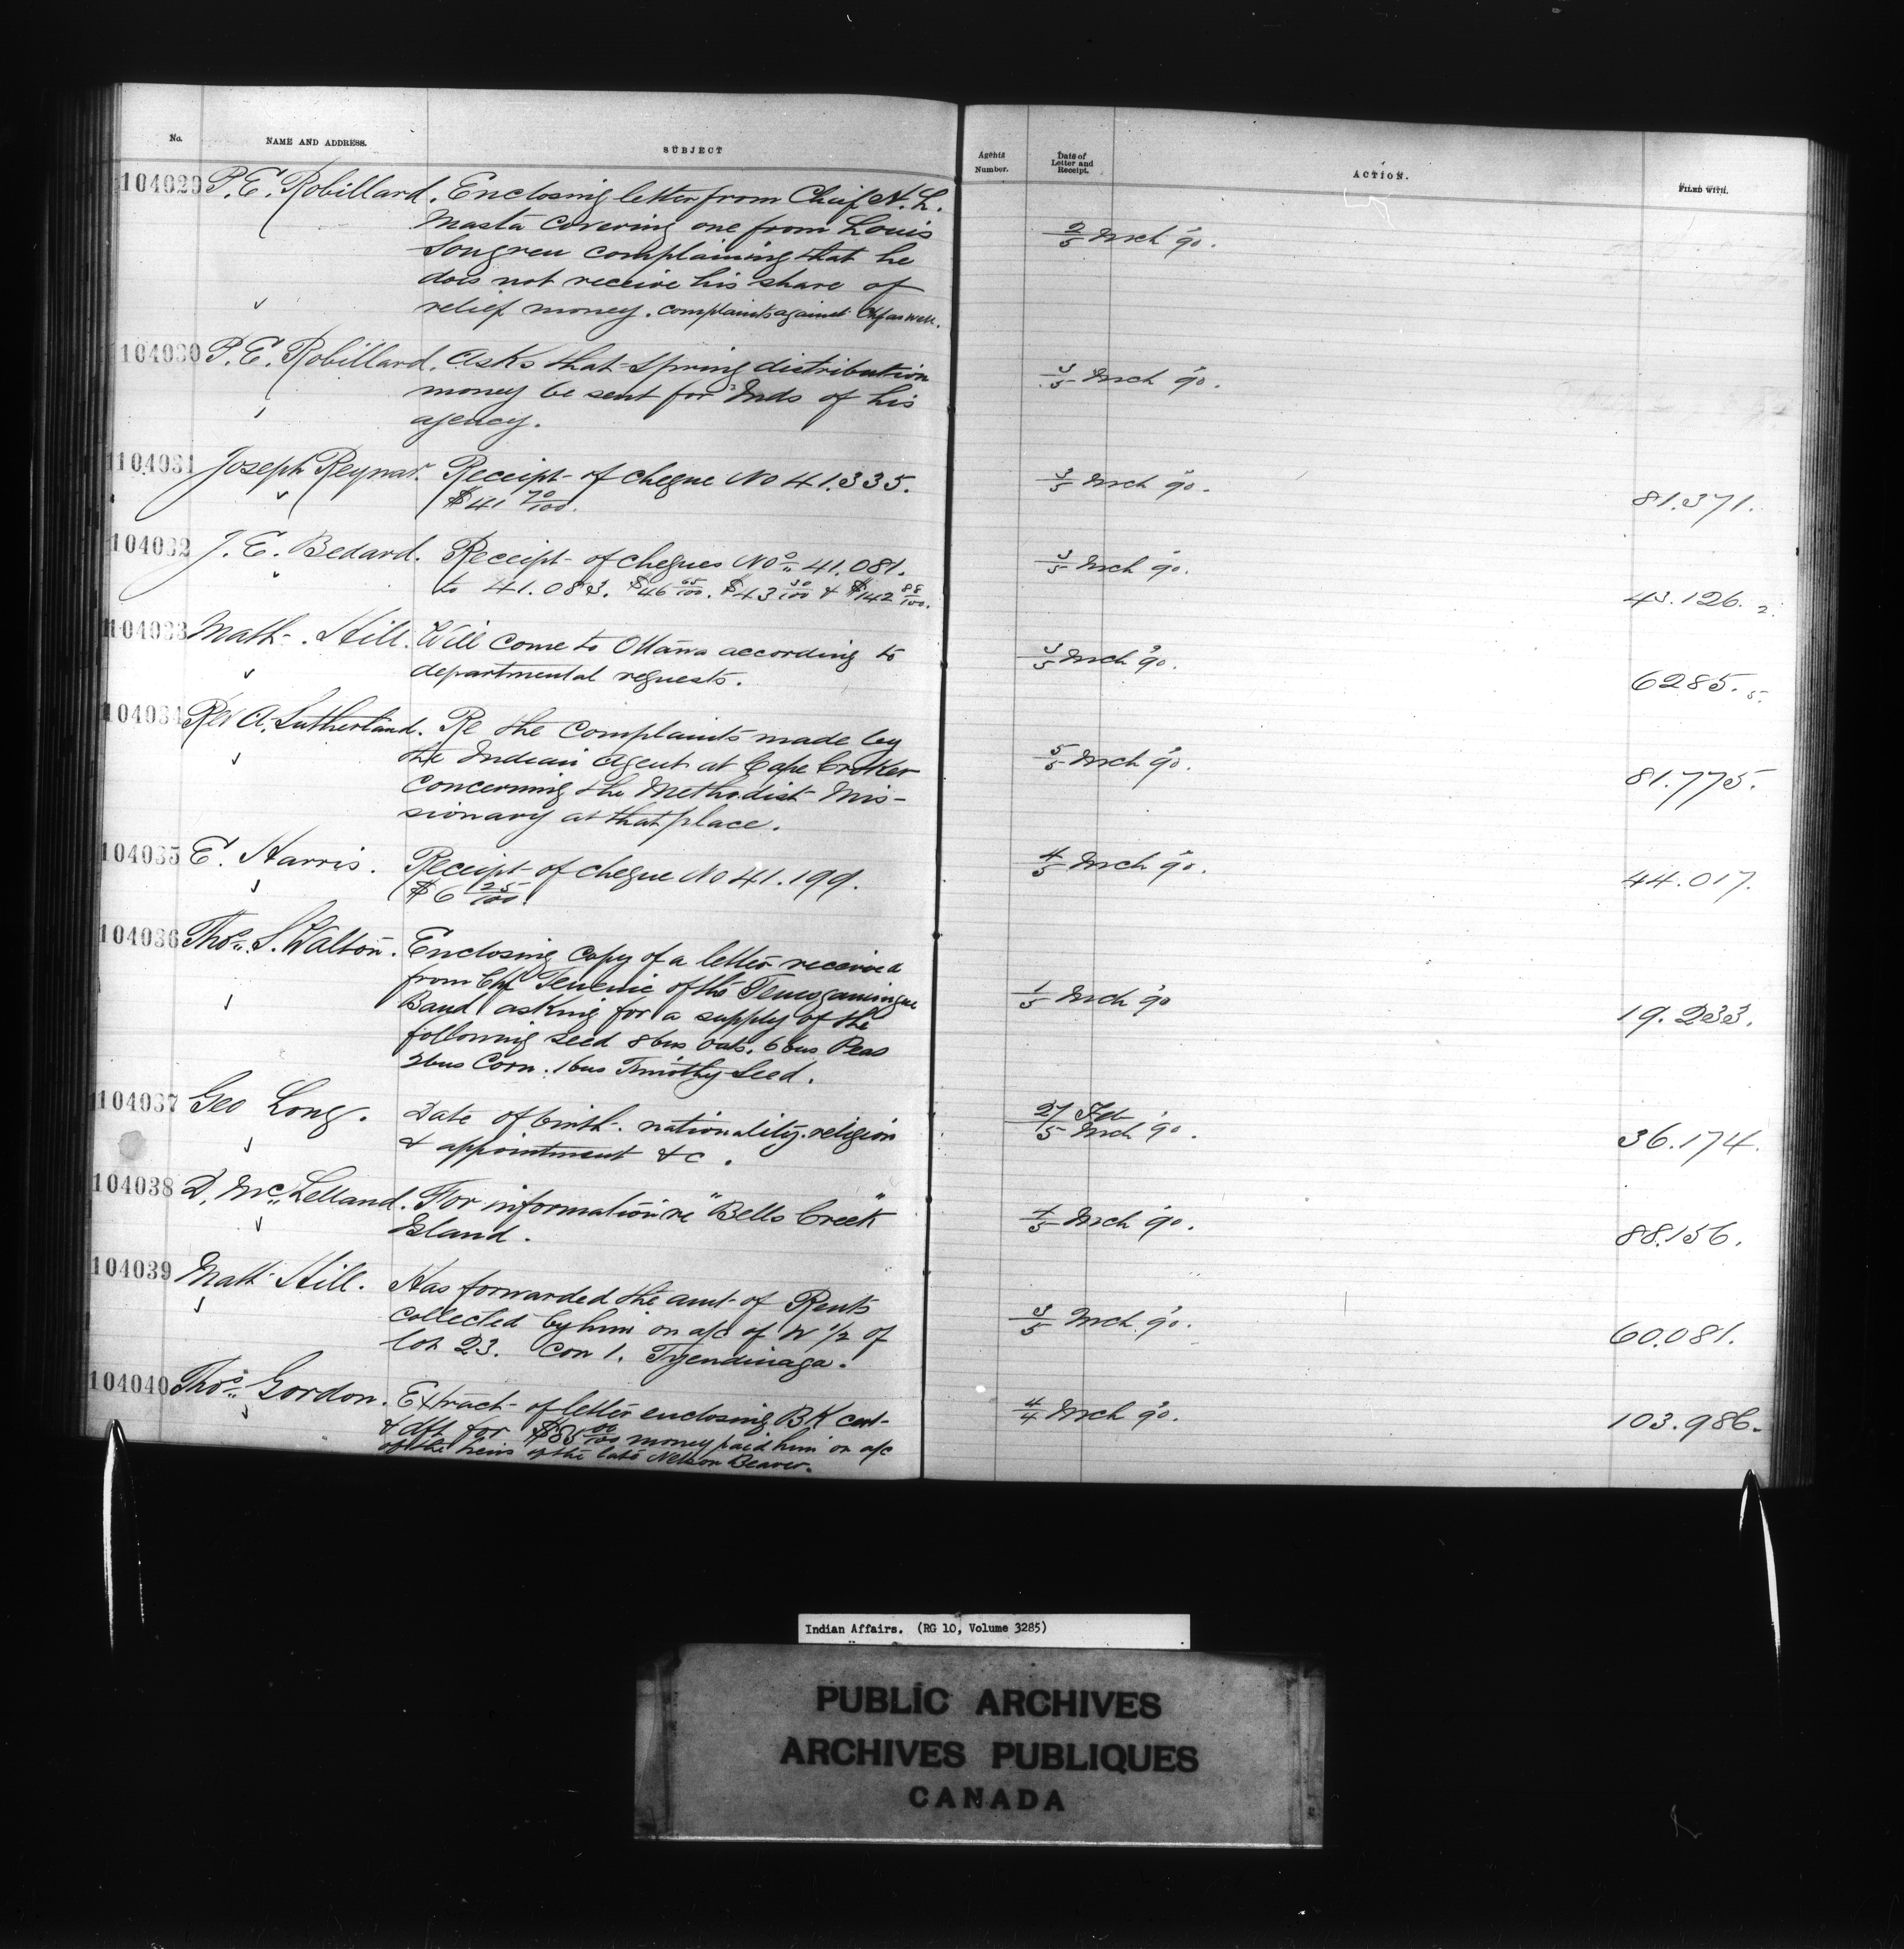 No. NAME AND ADDRESS. SUBJECT Agents Number. Date of Letter and Receipt. ACTION. FILED WITH.
104029 P. E. Robillard. Enclosing letter from Chief N. L.
Masta covering one from Louis
complaining that he 2/5 Mch '90.
does not receive his share of
relief money. complaints against Chf as well.
104030 P. E. Robillard. Asks that Spring distribution
money be sent for Inds of his 3/5 Mch '90.
agency.
104031 Joseph Reynar. Receipt of cheque No 41.335. 3/5 Mch '90. 81.371.
$41 70/100.
104032 J. E. Bedard. Receipt of cheques Nos 41.081. 3/5 Mch '90.
to 41.083. $46 65/100. $43 30/100 & $142 88/100. 43.126. 2.
104033 Matt. Hill. Will come to Ottawa according to 3/5 Mch '90.
departmental requests. 6285. 5.
104034 Rev A. Sutherland. Re the complaints made by
the Indian Agent at Cape Croker 5/5 Mch '90.
concerning the Methodist Mis- 81.775.
sionary at that place.
104035 E. Harris. Receipt of cheque No 41.199. 4/5 Mch '90. 44.017.
$6 25/100.
104036 Thos. S. Walton. Enclosing copy of a letter received
from Chf of the Temogamingue
Band asking for a supply of the 1/5 Mch '90 19.233.
following seed 8 bus Oats. 6 bus Peas
2 bus Corn. 1 bus Timothy Seed.
104037 Geo Long. Date of birth. nationality. religion 27 Feb / 5 Mch '90. 36.174.
& appointment &c.
104038 D. McLelland. For information re "Bells Creek"
Island. 4/5 Mch '90. 88.156.
104039 Matt Hill. Has forwarded the amt of Rents
collected by him on a/c of W 1/2 of 3/5 Mch '90. 60.081.
lot 23. Con 1. Tyendinaga.
104040 Thos. Gordon. Extract of letter enclosing BK cert- 4/4 Mch '90. 103.986.
& dft for 00/100 money paid him on a/c
of the heirs of the late Nelson Beaver.
Indian Affairs. (RG 10, Volume 3285)
PUBLIC ARCHIVES
ARCHIVES PUBLIQUES
CANADA